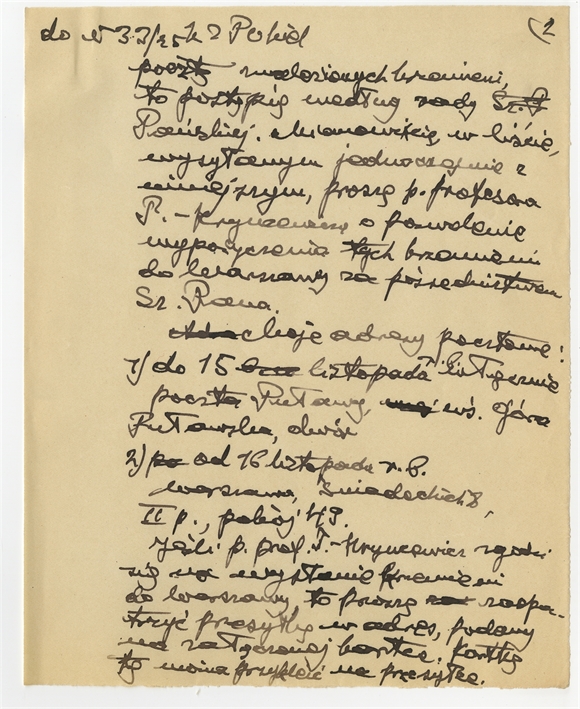 do N 33/25 k 2 Pobid (2
poczt znalezionych krzemieni,
to postąpię według rady Sz. P
Pańskiej. Mianowicie, w liście,
wysyłanym jednocześnie z
niniejszym, proszę p. profesora
T.-Hryncewicza o pozwolenie
wypożyczenia tych krzemieni
do Warszawy za pośrednictwem
Sz. Pana.
Moje adresy pocztowe:
1) do 15 listopada r. b. włącznie
poczta Puławy, wś. Góra
Puławska, dwór
2) od 16 listopada r. b.
Warszawa, Śniadeckich 8,
II p., pokój 43.
Jeśli p. prof. T.-Hryncewicz zgodzi
się na wysłanie krzemieni
do Warszawy to proszę zaopa-
trzyć przesyłkę w adres, podany
na załączonej kartce. Kartkę
tę można przykleić na przesyłce.